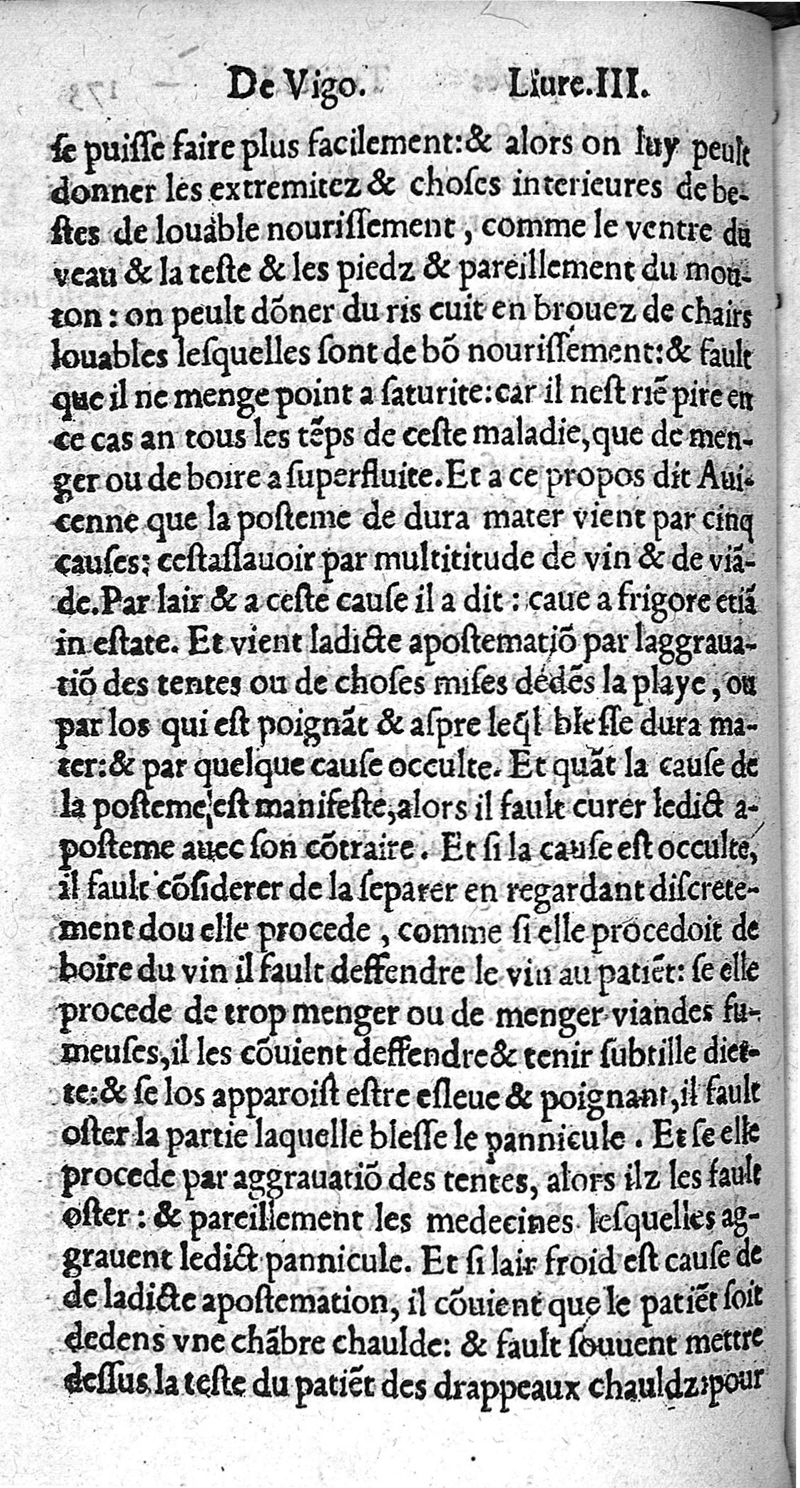 De Vigo. Liure.III.
ſe puiſſe faire plus facilement:& alors on luy peult
donner les extremitez & choſes interieures de be-
ſtes de louable nouriſſement, comme le ventre du
veau & la teſte & les piedz & pareillement du mou-
ton : on peult dõner du ris cuit en brouez de chairs
louables leſquelles ſont de bõ nouriſſement:& fault
que il ne menge point a ſaturite:car il neſt riẽ pire en
ce cas an tous les tẽps de ceſte maladie,que de men-
ger ou de boire a ſuperfluite.Et a ce propos dit Aui-
cenne que la poſteme de dura mater vient par cinq
cauſes: ceſtaſſauoir par multititude de vin & de viã-
de.Par lair & a ceſte cauſe il a dit : caue a frigore etiã
in eſtate. Et vient ladicte apoſtematiõ par laggraua-
tiõ des tentes ou de choſes miſes dedẽs la playe, ou
par los qui eſt poignãt & aſpre leq̃l bleſſe dura ma-
ter:& par quelque cauſe occulte. Et quãt la cauſe de
la poſteme eſt manifeſte,alors il fault curer ledict a-
poſteme auec ſon cõtraire. Et ſi la cauſe eſt occulte,
il fault cõſiderer de la ſeparer en regardant diſcrete-
ment dou elle procede , comme ſi elle procedoit de
boire du vin il fault deffendre le vin au patiẽt: ſe elle
procede de trop menger ou de menger viandes fu-
meuſes,il les cõuient deffendre& tenir ſubtille diet-
te:& ſe los apparoiſt eſtre eſleue & poignant,il fault
oſter la partie laquelle bleſſe le pannicule . Et ſe elle
procede par aggrauatiõ des tentes, alors ilz les fault
oſter : & pareillement les medecines leſquelles ag-
grauent ledict pannicule. Et ſi lair froid eſt cauſe de
de ladicte apoſtemation, il cõuient que le patiẽt ſoit
dedens vne chãbre chaulde: & fault ſouuent mettre
deſſus la teſte du patiẽt des drappeaux chauldz:pour